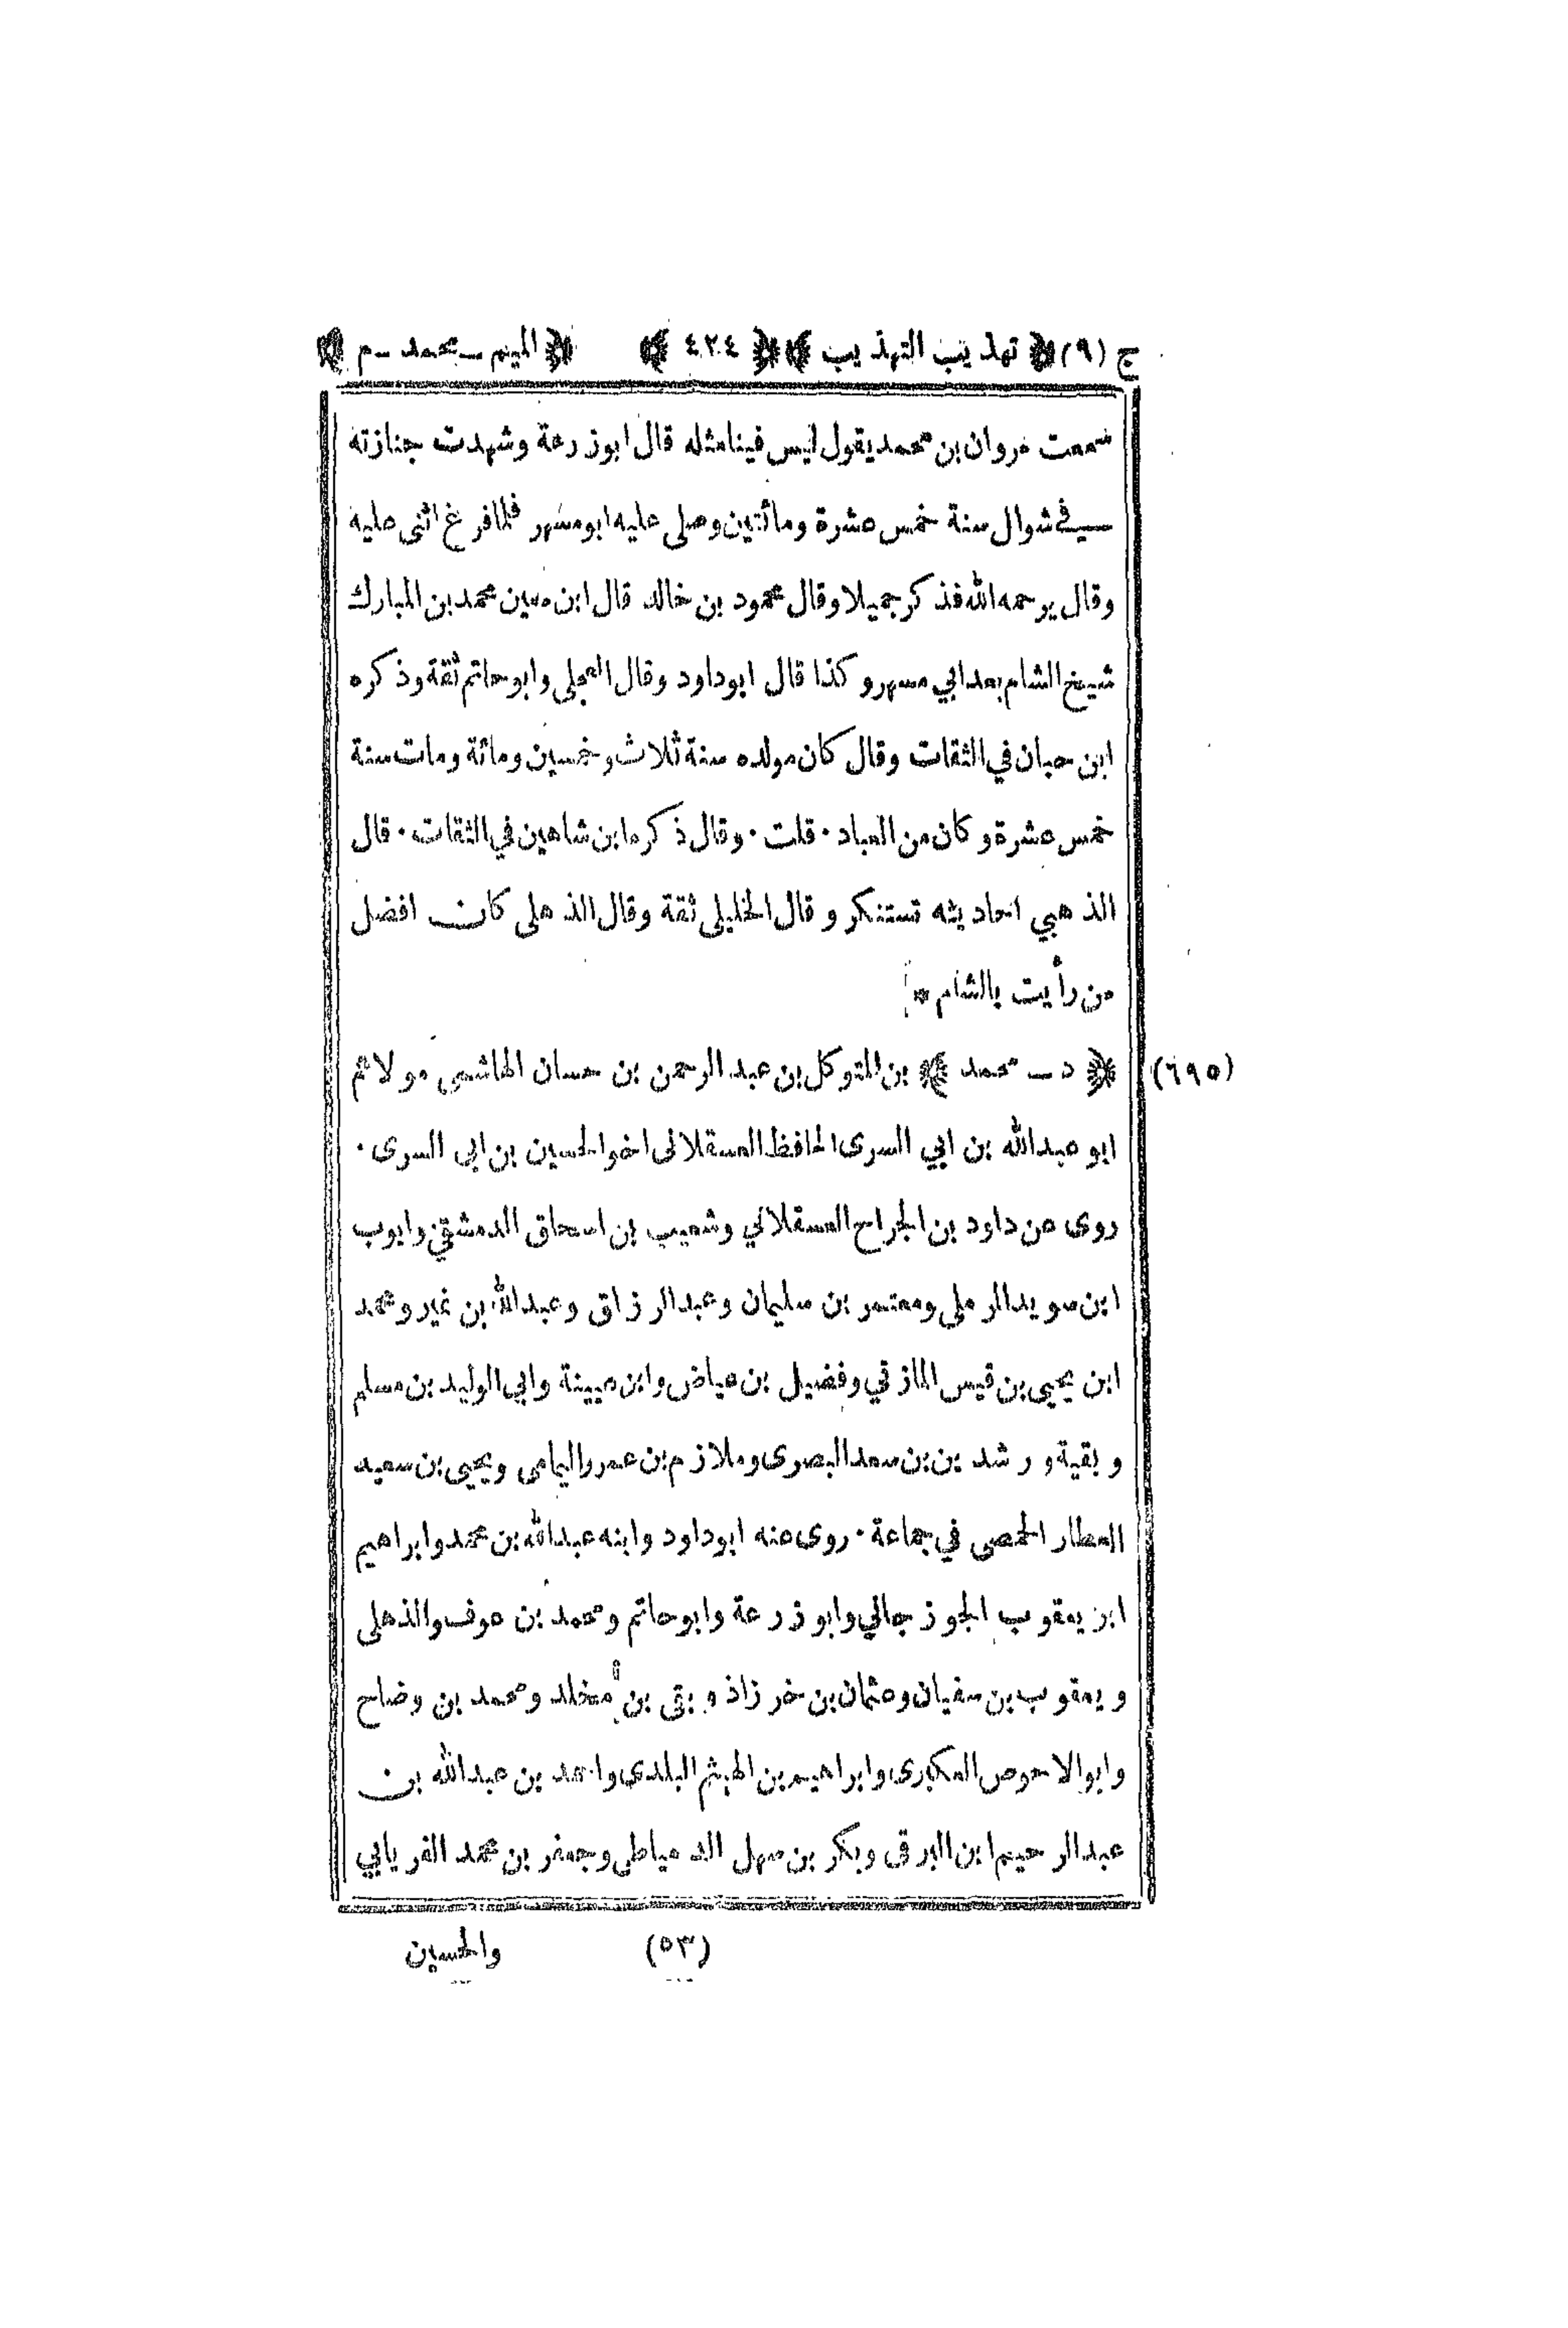 ج (٩) ﴿ تهذيب التهذيب ﴾ ﴿ ٤٢٤ ﴾ ﴿ الميم ـ محمد ـ م ﴾
سمعت مروان بن محمد يقول ليس فينا مثله قال ابو زرعة وشهدت جنازته
في شوال سنة خمس عشرة ومائتين وصلى عليه ابو مسهر فلما فرغ اثنى عليه
وقال يرحمه الله فذكر جميلا وقال محمود بن خالد قال ابن معين محمد بن المبارك
شيخ الشام بعد ابي مسهر و كذا قال ابو داود وقال العجلى وابو حاتم ثقة وذكره
ابن حبان في الثقات وقال كان مولده سنة ثلاث وخمسين ومائة ومات سنة
خمس عشرة وكان من العباد · قلت · وقال ذكره ابن شاهين في الثقات · قال
الذهبي احاديثه تستنكر و قال الخليلى ثقة وقال الذهلى كان افضل
من رأيت بالشام *
(٦٩٥) ﴿ د ـ محمد ﴾ بن المتوكل بن عبد الرحمن بن حسان الهاشمى مولاهم
ابو عبد الله بن ابي السرى الحافظ العسقلانى اخو الحسين بن ابى السرى ·
روى عن داود بن الجراح العسقلاني وشعيب بن اسحاق الدمشقي وايوب
ابن سويد الرملي ومعتمر بن سليمان وعبد الرزاق وعبد الله بن نمير ومحمد
ابن يحيى بن قيس المازني وفضيل بن عياض وابن عيينة وابي الوليد بن مسلم
و بقية و رشد ين بن سعد البصرى وملازم بن عمرو اليمامى ويحيى بن سعيد
العطار الحمصى في جماعة · روى عنه ابو داود وابنه عبد الله بن محمد وابراهيم
ابن يعقوب الجوزجاني وابو زرعة وابو حاتم ومحمد بن عوف والذهلى
و يعقوب بن سفيان وعثمان بن خرزاذ و بقى بن مخلد ومحمد بن وضاح
وابو الاحوص العكبرى وابراهيم بن الهيثم البلدى واحمد بن عبد الله بن
عبد الرحيم ابن البرقى وبكر بن سهل الدمياطى وجعفر بن محمد الفريابي
(٥٣) والحسين